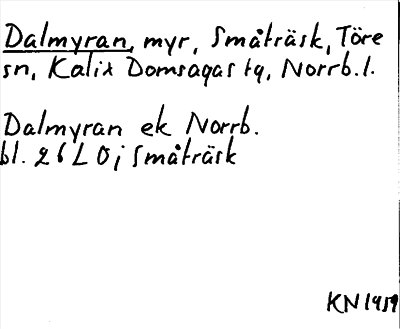 Dalmyran, myr, Småträsk, Töre
sn, Kalix Domsagas tg, Norrb. l.
Dalmyran ek Norrb.
bl. 26 L 0 j Småträsk
KN 1959